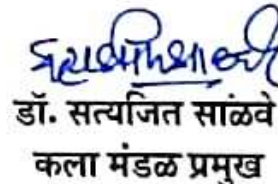 डॉ. सत्यजित सांळवे
कला मंडळ प्रमुख